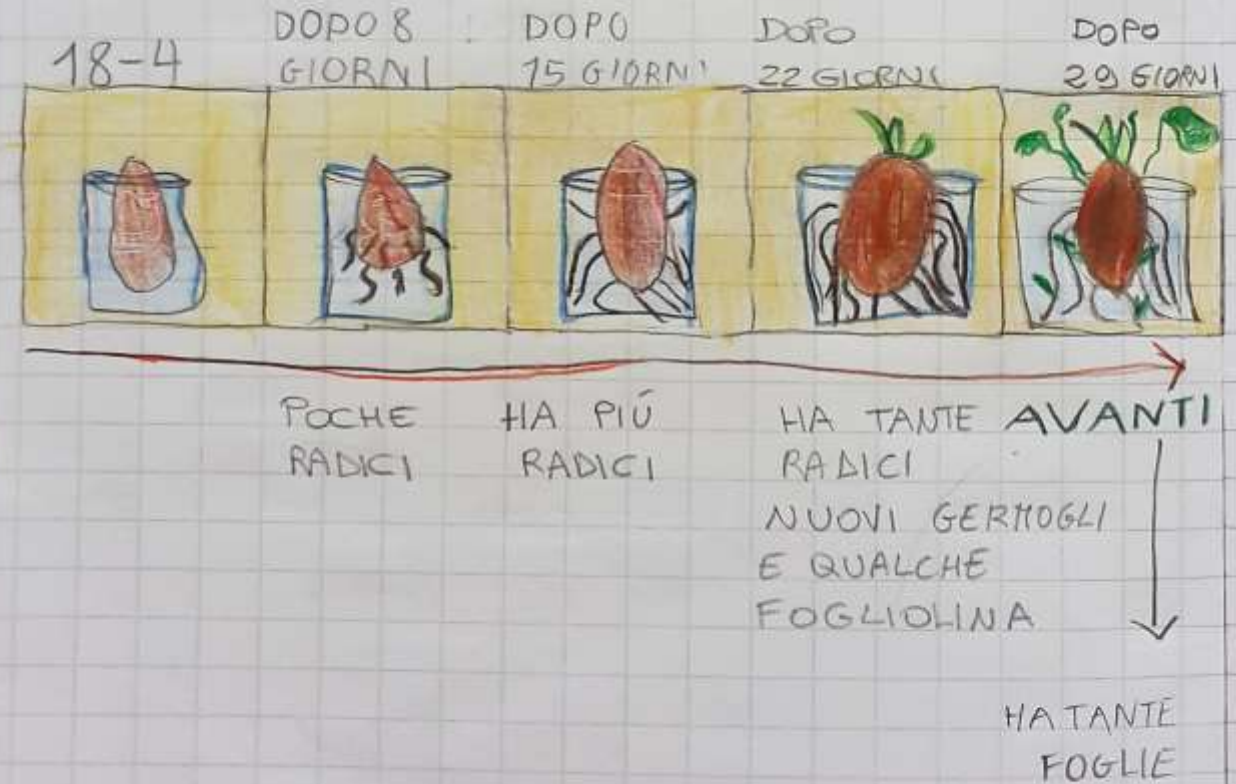 18-4
DOPO 8
GIORNI
DOPO
15 GIORNI
DOPO
22 GIORNI
DOPO
29 GIORNI
POCHE
RADICI
HA PIÚ
RADICI
HA TANTE
RADICI
NUOVI GERMOGLI
E QUALCHE
FOGLIOLINA
AVANTI
HA TANTE
FOGLIE